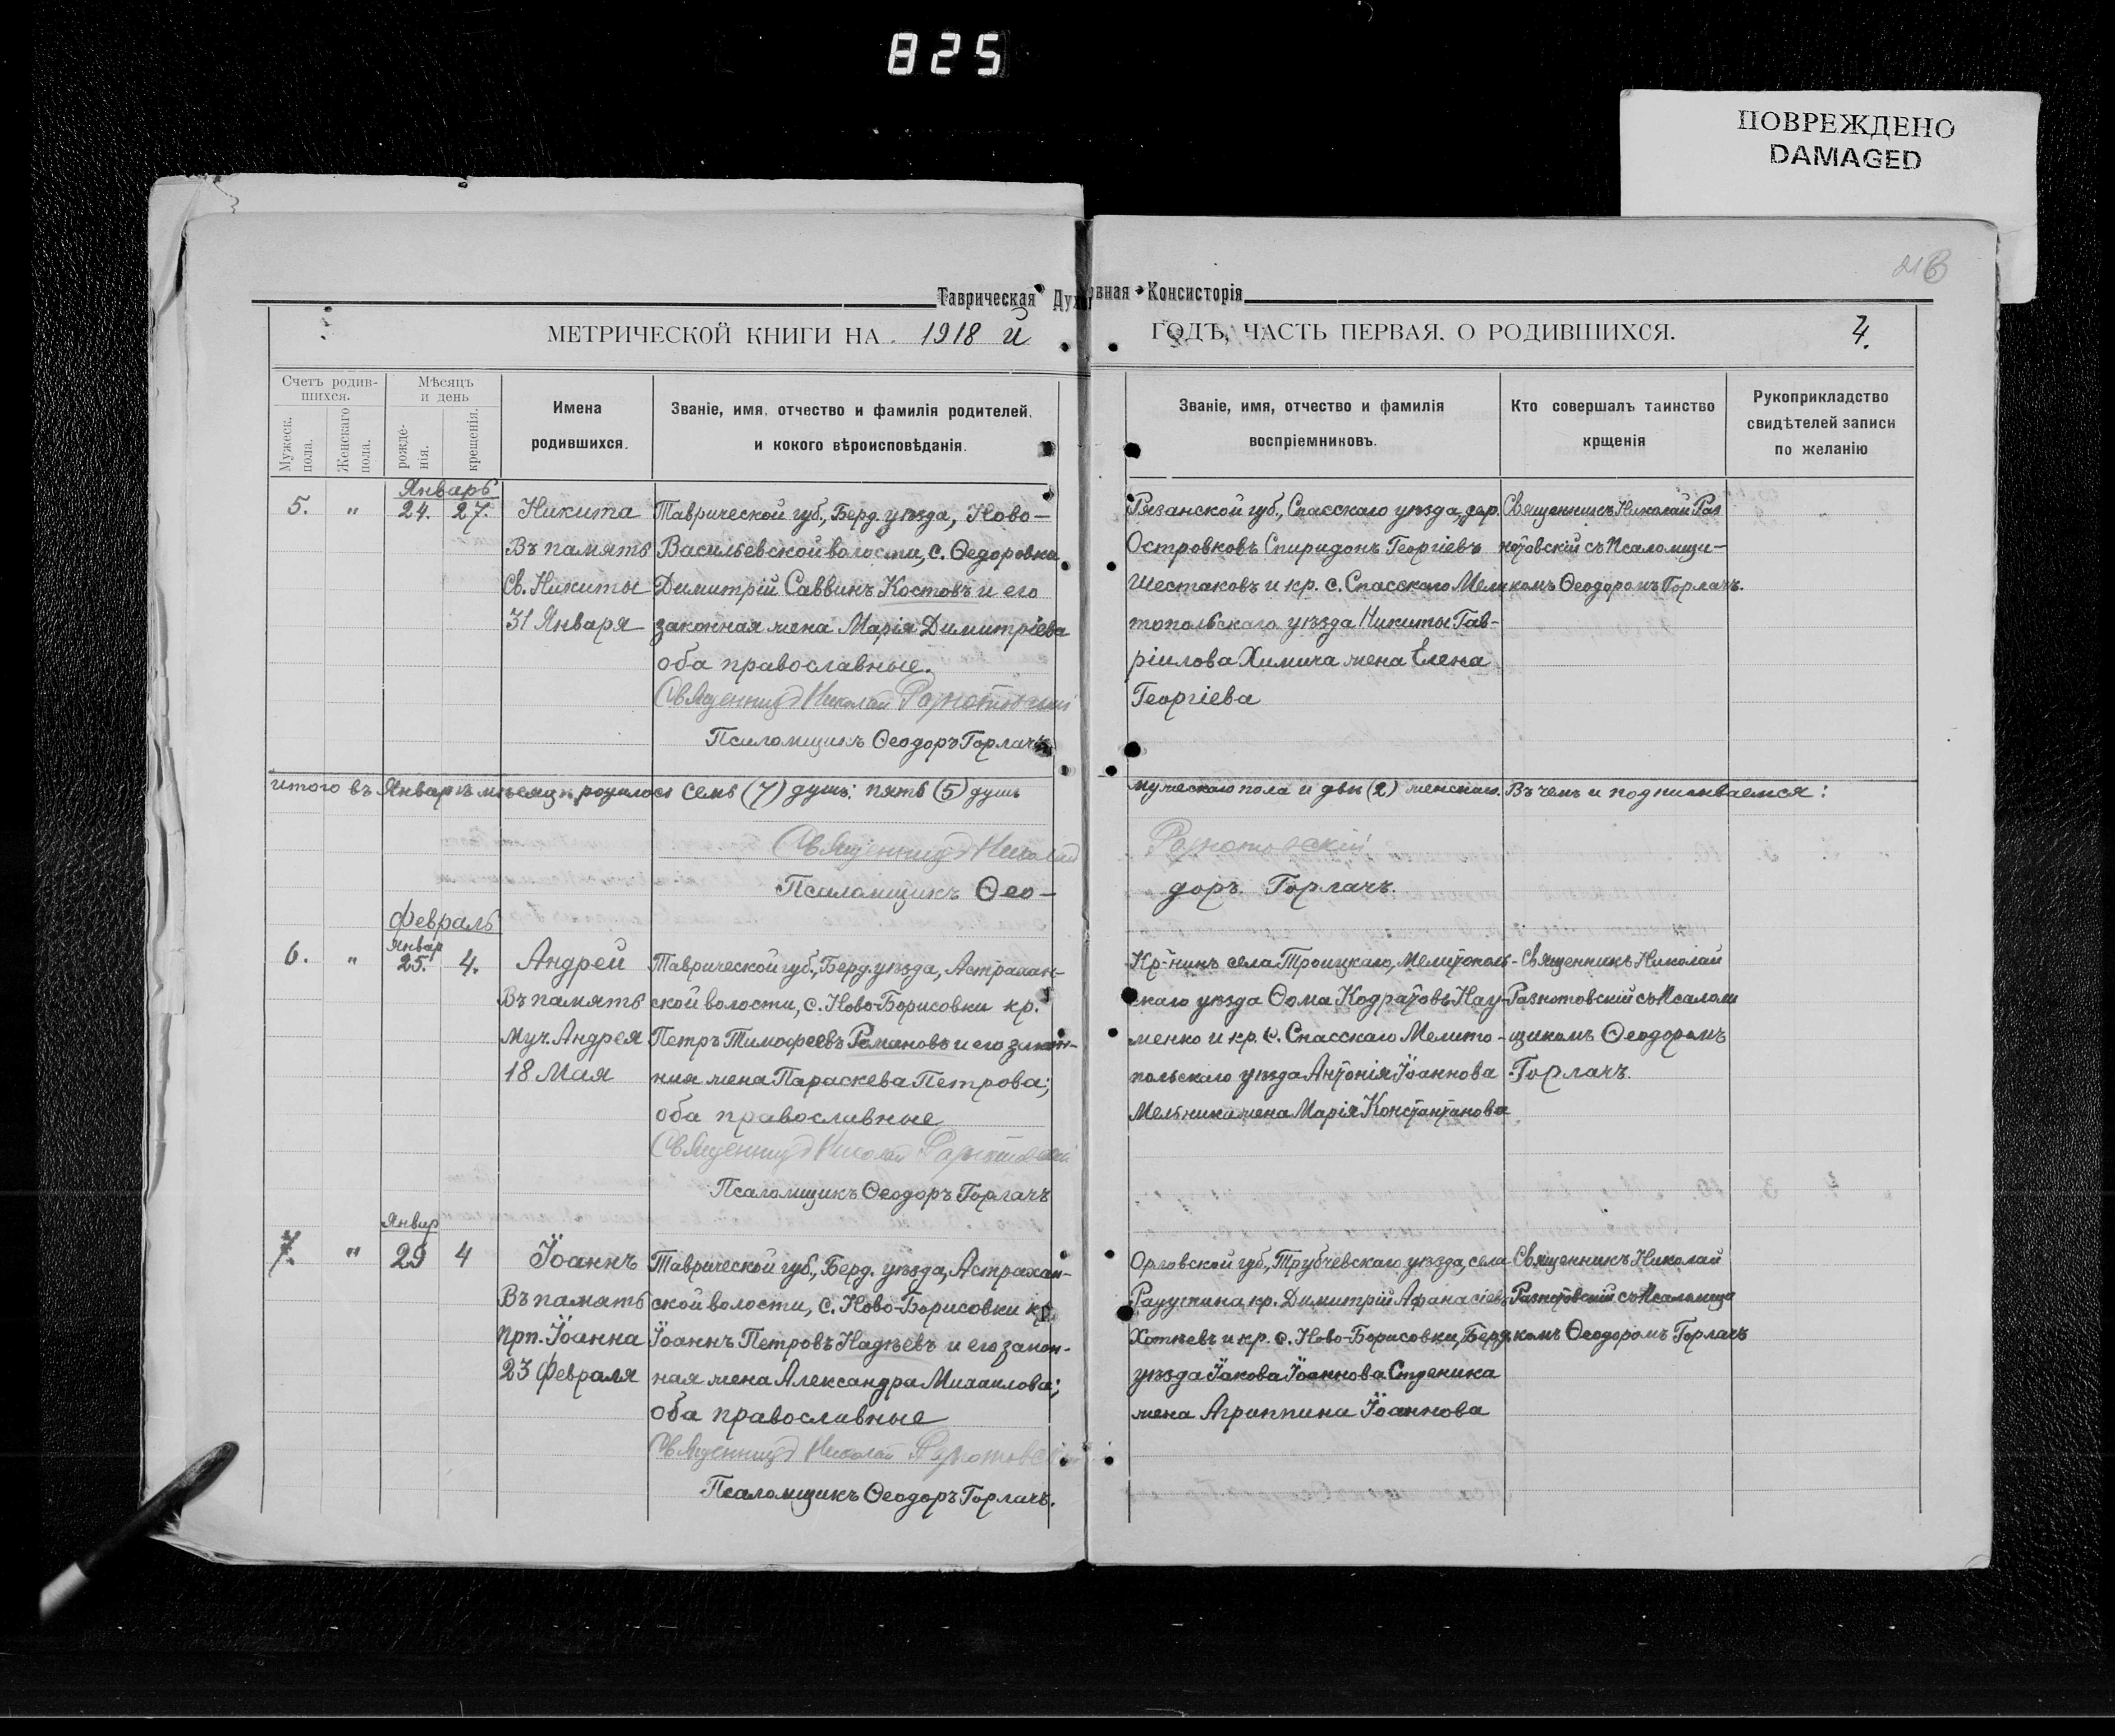 825
ПОВРЕЖДЕНО
DAMAGED
Таврическая Духовная Консисторія
МЕТРИЧЕСКОЙ КНИГИ НА 1918 й ГОДЪ, ЧАСТЬ ПЕРВАЯ, О РОДИВШИХСЯ. 4.
Счетъ родив-
шихся.
Мужеск.
пола.
Женскаго
пола.
Мѣсяцъ
и день
рожде-
нія.
крещенія.
Имена
родившихся.
Званіе, имя, отчество и фамилія родителей,
и кокого вѣроисповѣданія.
Званіе, имя, отчество и фамилія
воспріемниковъ.
Кто совершалъ таинство
крщенія
Рукоприкладство
свидѣтелей записи
по желанію
Январь
5. " 24. 27.
Никита
Въ память
Св. Никиты
31 Января
Таврической губ., Берд. уѣзда, Ново-
Васильевской волости, с. Ѳедоровки
Димитрій Саввинъ Костовъ и его
законная жена Марія Димитріева
оба православные.
Священникъ Николай Разнотовскій
Псаломщикъ Ѳеодоръ Горлачъ
Рязанской губ., Спасскаго уѣзда, дер.
Островковъ Спиридонъ Георгіевъ
Шестаковъ и кр. с. Спасскаго Мели
топольскаго уѣзда Никиты Гав-
ріилова Химича жена Елена
Георгіева
Священникъ Николай Раз
нотовскій съ Псаломщи-
комъ Ѳеодоромъ Горлачъ.
Итого въ Январѣ мѣсяцѣ родилось семь (7) душъ: пять (5) душъ мужескаго пола и двѣ (2) женскаго. Въ чемъ и подписываемся:
Священникъ Николай Разнотовскій
Псаломщикъ Ѳео- доръ Горлачъ.
Февраль
Январ
6. " 25. 4.
Андрей
Въ память
муч. Андрея
18 Мая
Таврической губ., Берд. уѣзда, Астрахан-
ской волости, с. Ново-Борисовки кр.
Петръ Тимофеевъ Романовъ и его закон-
ная жена Параскева Петрова;
оба православные
Священникъ Николай Разнотовскій
Псаломщикъ Ѳеодоръ Горлачъ
Кр-нинъ села Троицкаго, Мелитополь-
скаго уѣзда Ѳома Кодратовъ Нау-
менко и кр. с. Спасскаго Мелито-
польскаго уѣзда Антонія Іоаннова
Мельника жена Марія Константинова
Священникъ Николай
Разнотовскій съ Псалом
щикомъ Ѳеодоромъ
Горлачъ.
Январ
7. " 29 4
Іоаннъ
Въ память
прп. Іоанна
23 Февраля
Таврической губ., Берд. уѣзда, Астрахан-
ской волости, с. Ново-Борисовки кр.
Іоаннъ Петровъ Надѣевъ и его закон-
ная жена Александра Михаилова;
оба православные
Священникъ Николай Разнотовскій
Псаломщикъ Ѳеодоръ Горлачъ.
Орловской губ., Трубчевскаго уѣзда, села
кр. Димитрій Афанасіевъ
Хотѣевъ и кр. с. Ново-Борисовки, Берд.
уѣзда Іакова Іоаннова
жена Агриппина Іоаннова
Священникъ Николай
Разнотовскій съ Псаломщи
комъ Ѳеодоромъ Горлачъ